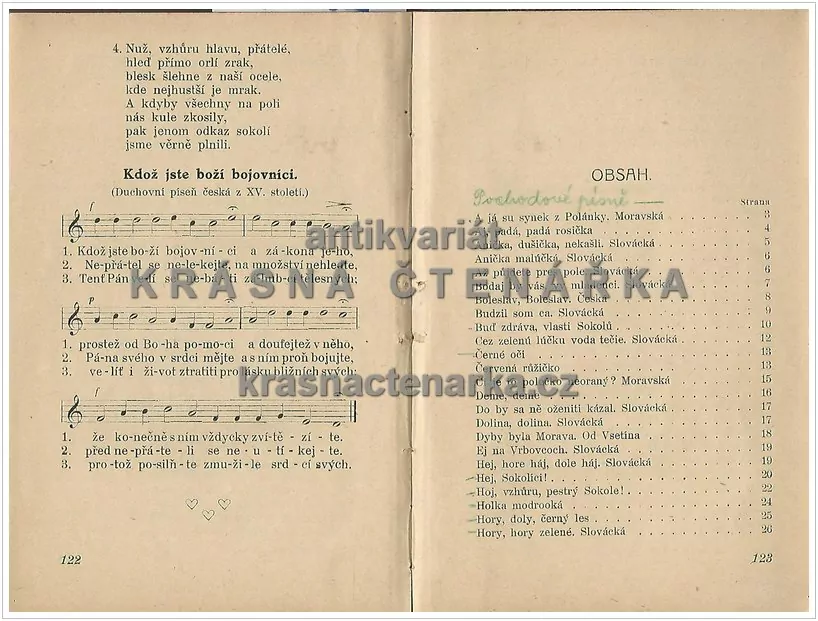 4. Nuž, vzhůru hlavu, přátelé,
hleď přímo orlí zrak,
blesk šlehne z naší ocele,
kde nejhustší je mrak.
A kdyby všechny na poli
nás kule zkosily,
pak jenom odkaz sokolí
jsme věrně plnili.
Kdož jste boží bojovníci.
(Duchovní píseň česká z XV. století.)
f
1. Kdož jste bo-ží bojov-ní-ci a zá-kona je-ho,
2. Ne-přá-tel se ne-le-kejte, na množství nehleďte,
3. Tenť Pán velí se ne-bá-ti záhub-cí tělesných;
p
1. prostež od Bo-ha po-mo-ci a doufejtež v něho,
2. Pá-na svého v srdci mějte a s ním proň bojujte,
3. ve-líť i ži-vot ztratiti pro lásku bližních svých:
f
1. že ko-nečně s ním vždycky zví-tě-zí-te.
2. před ne-přá-te-li se ne-u-tí-kej-te.
3. pro-tož po-silň-te zmu-ži-le srd-cí svých.
122
OBSAH.
Pochodové písně —
Strana
A já su synek z Polánky. Moravská 3
padá, padá rosička 4
Anička, dušička, nekašli. Slovácká 5
Anička malúčká. Slovácká 6
Až půjdete přes pole. Slovácká 6
Bodaj by vás vy mládenci. Slovácká 7
Boleslav, Boleslav. Česká 8
Budzil som ca. Slovácká 9
Buď zdráva, vlasti Sokolů 10
Cez zelenú lúčku voda tečie. Slovácká 12
Černé oči 13
Červená růžičko 13
Čí je to poléčko neoraný? Moravská 15
Deme, deme 16
Do by sa ně oženiti kázal. Slovácká 17
Dolina, dolina. Slovácká 17
Dyby byla Morava. Od Vsetína 18
Ej na Vrbovcoch. Slovácká 19
Hej, hore háj, dole háj. Slovácká 19
Hej, Sokolíci! 20
Hoj, vzhůru, pestrý Sokole! 22
Holka modrooká 24
Hory, doly, černý les 25
Hory, hory zelené. Slovácká 26
123
antikvariát
KRÁSNÁ ČTENÁŘKA
krasnactenarka.cz